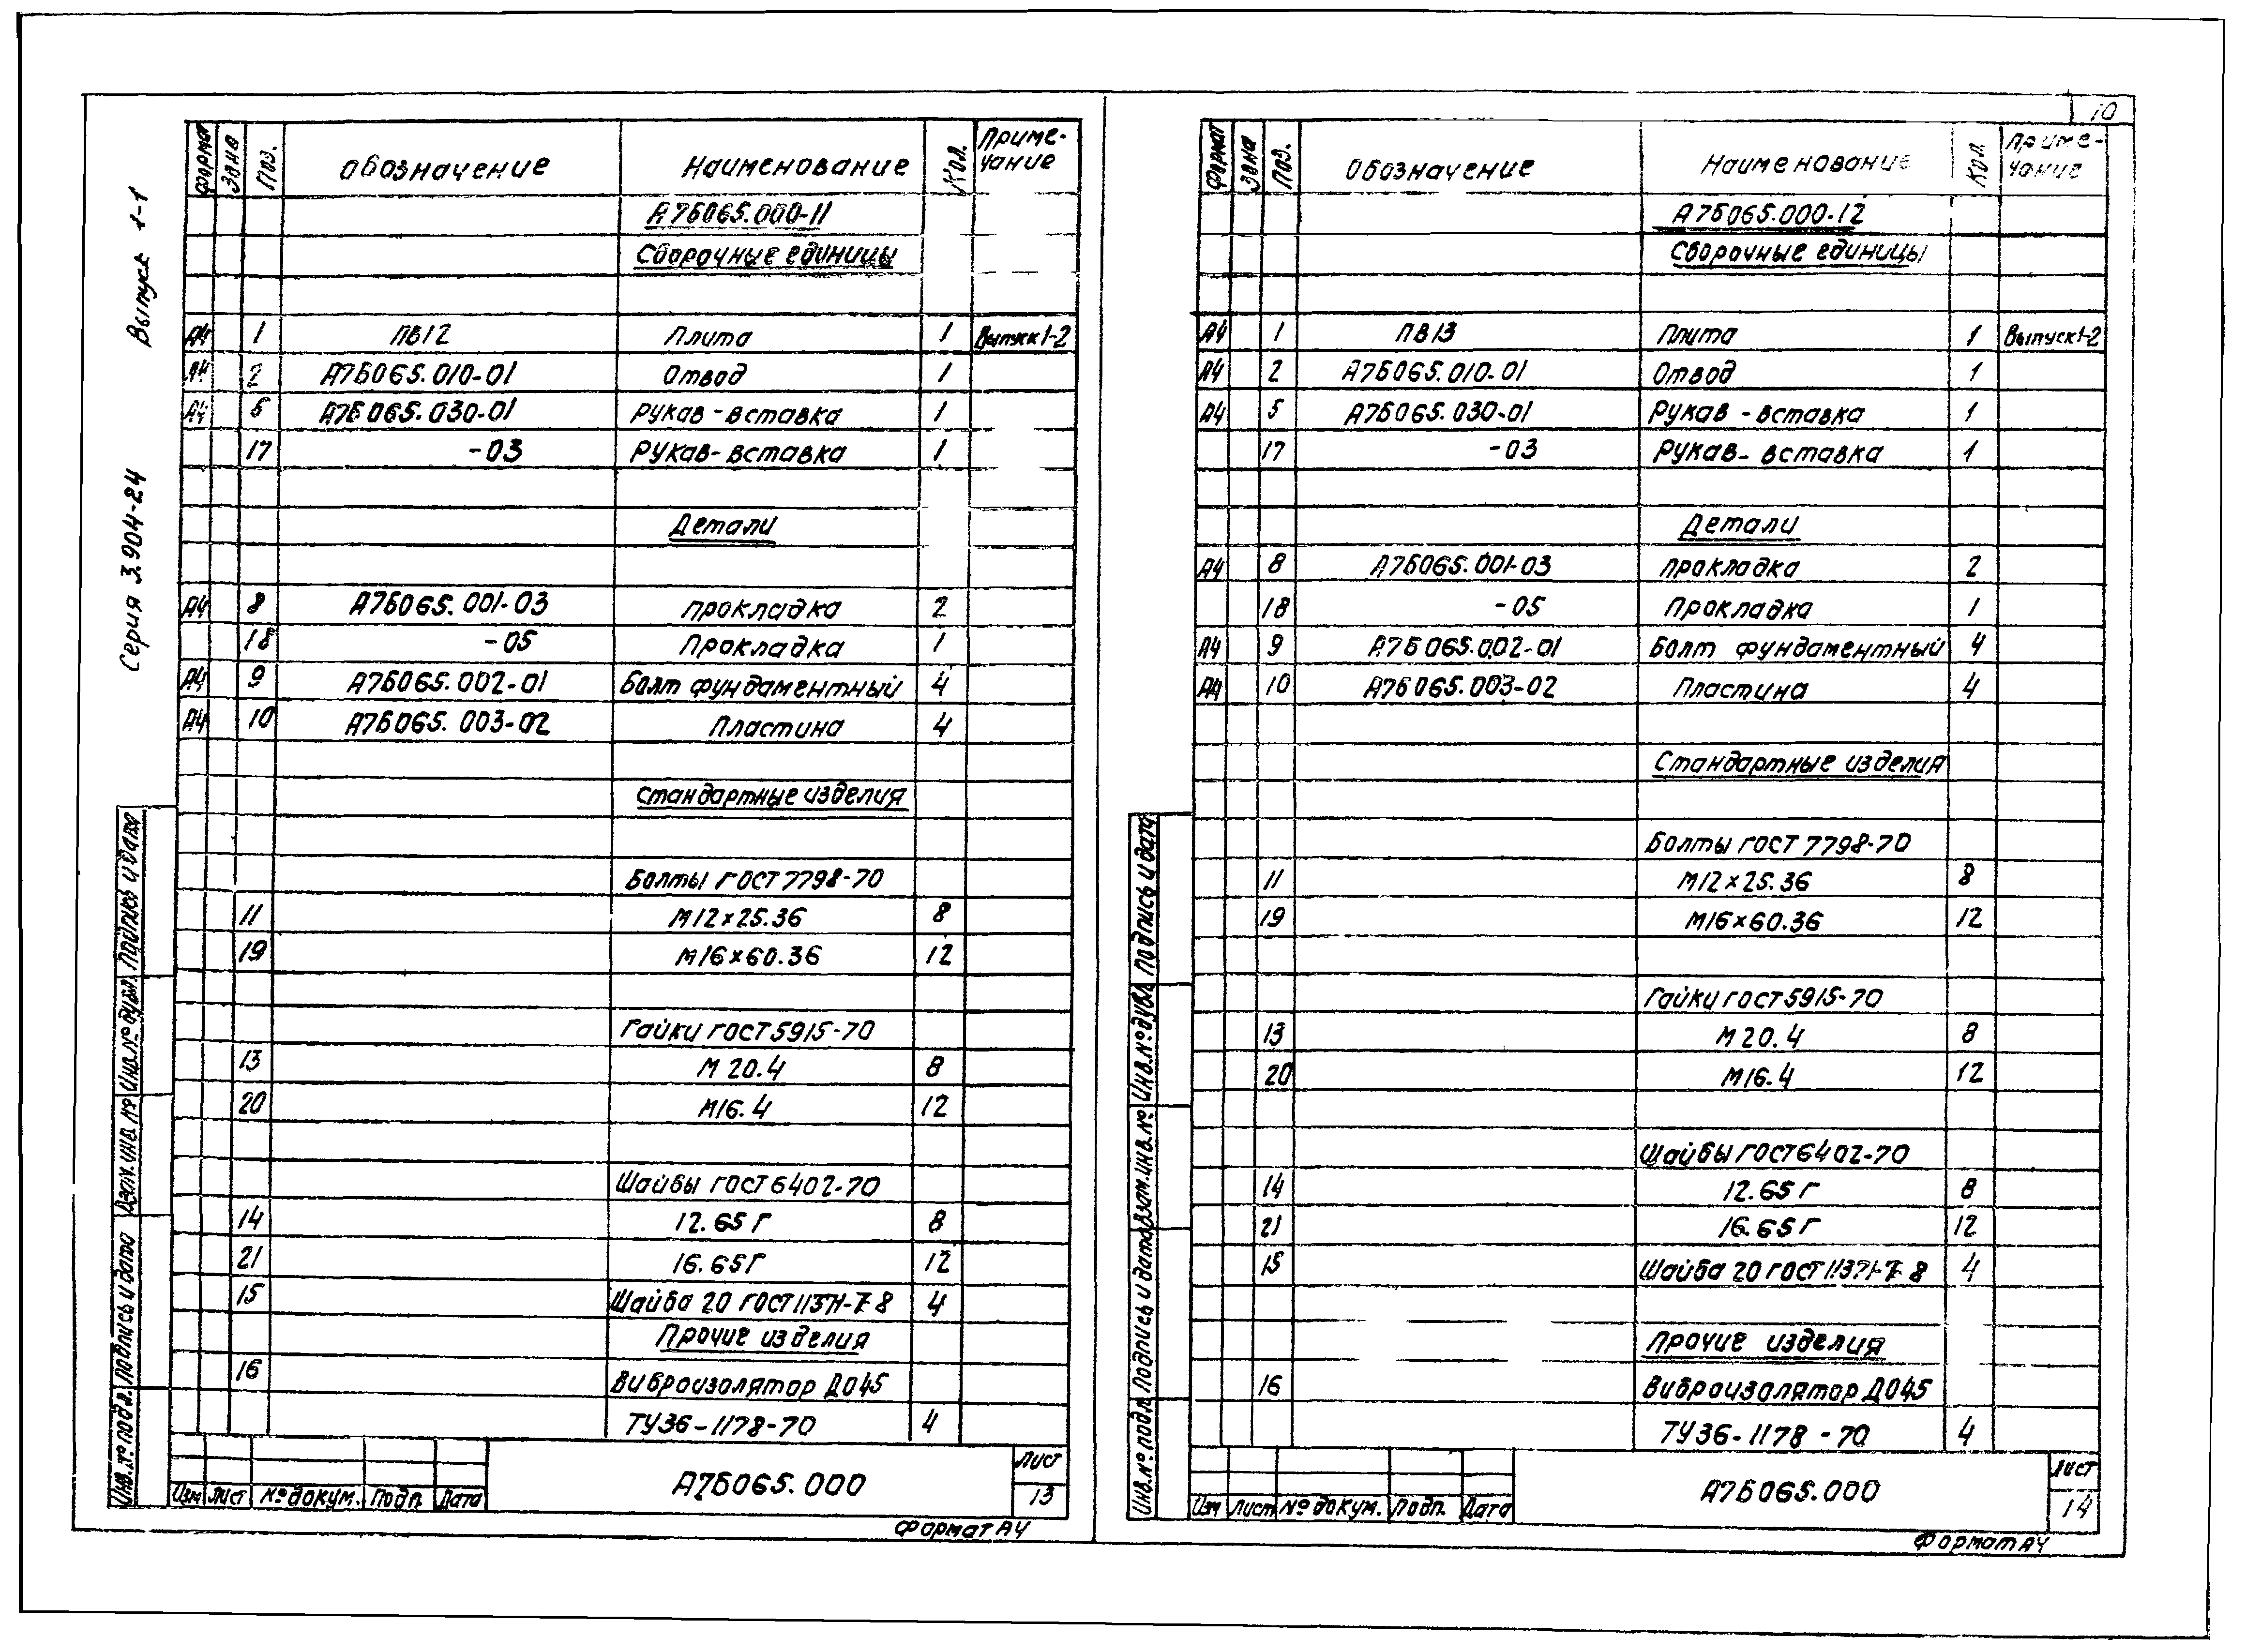 10
Серия 3.904-24 Выпуск 1-1
Формат Зона Поз. Обозначение Наименование Кол. Приме-
чание
А7Б065.000-11
Сборочные единицы
А4 1 ПВ12 Плита 1 Выпуск 1-2
А4 2 А7Б065.010-01 Отвод 1
А4 5 А7Б065.030-01 Рукав-вставка 1
17 -03 Рукав-вставка 1
Детали
А4 8 А7Б065.001-03 Прокладка 2
18 -05 Прокладка 1
А4 9 А7Б065.002-01 Болт фундаментный 4
А4 10 А7Б065.003-02 Пластина 4
Стандартные изделия
Болты ГОСТ 7798-70
11 М12×25.36 8
19 М16×60.36 12
Гайки ГОСТ 5915-70
13 М20.4 8
20 М16.4 12
Шайбы ГОСТ 6402-70
14 12.65Г 8
21 16.65Г 12
15 Шайба 20 ГОСТ 11371-78 4
Прочие изделия
16 Виброизолятор ДО45
ТУ36-1178-70 4
Изм Лист № докум. Подп. Дата
А7Б065.000
Лист
13
Формат А4
Инв.№ подл. Подпись и дата Взам.инв.№ Инв.№ дубл. Подпись и дата
Формат Зона Поз. Обозначение Наименование Кол. Приме-
чание
А7Б065.000-12
Сборочные единицы
А4 1 ПВ13 Плита 1 Выпуск 1-2
А4 2 А7Б065.010-01 Отвод 1
А4 5 А7Б065.030-01 Рукав-вставка 1
17 -03 Рукав-вставка 1
Детали
А4 8 А7Б065.001-03 Прокладка 2
18 -05 Прокладка 1
А4 9 А7Б065.002-01 Болт фундаментный 4
А4 10 А7Б065.003-02 Пластина 4
Стандартные изделия
Болты ГОСТ 7798-70
11 М12×25.36 8
19 М16×60.36 12
Гайки ГОСТ 5915-70
13 М20.4 8
20 М16.4 12
Шайбы ГОСТ 6402-70
14 12.65Г 8
21 16.65Г 12
15 Шайба 20 ГОСТ 11371-78 4
Прочие изделия
16 Виброизолятор ДО45
ТУ36-1178-70 4
Изм Лист № докум. Подп. Дата
А7Б065.000
Лист
14
Формат А4
Инв.№ подл. Подпись и дата Взам.инв.№ Инв.№ дубл. Подпись и дата